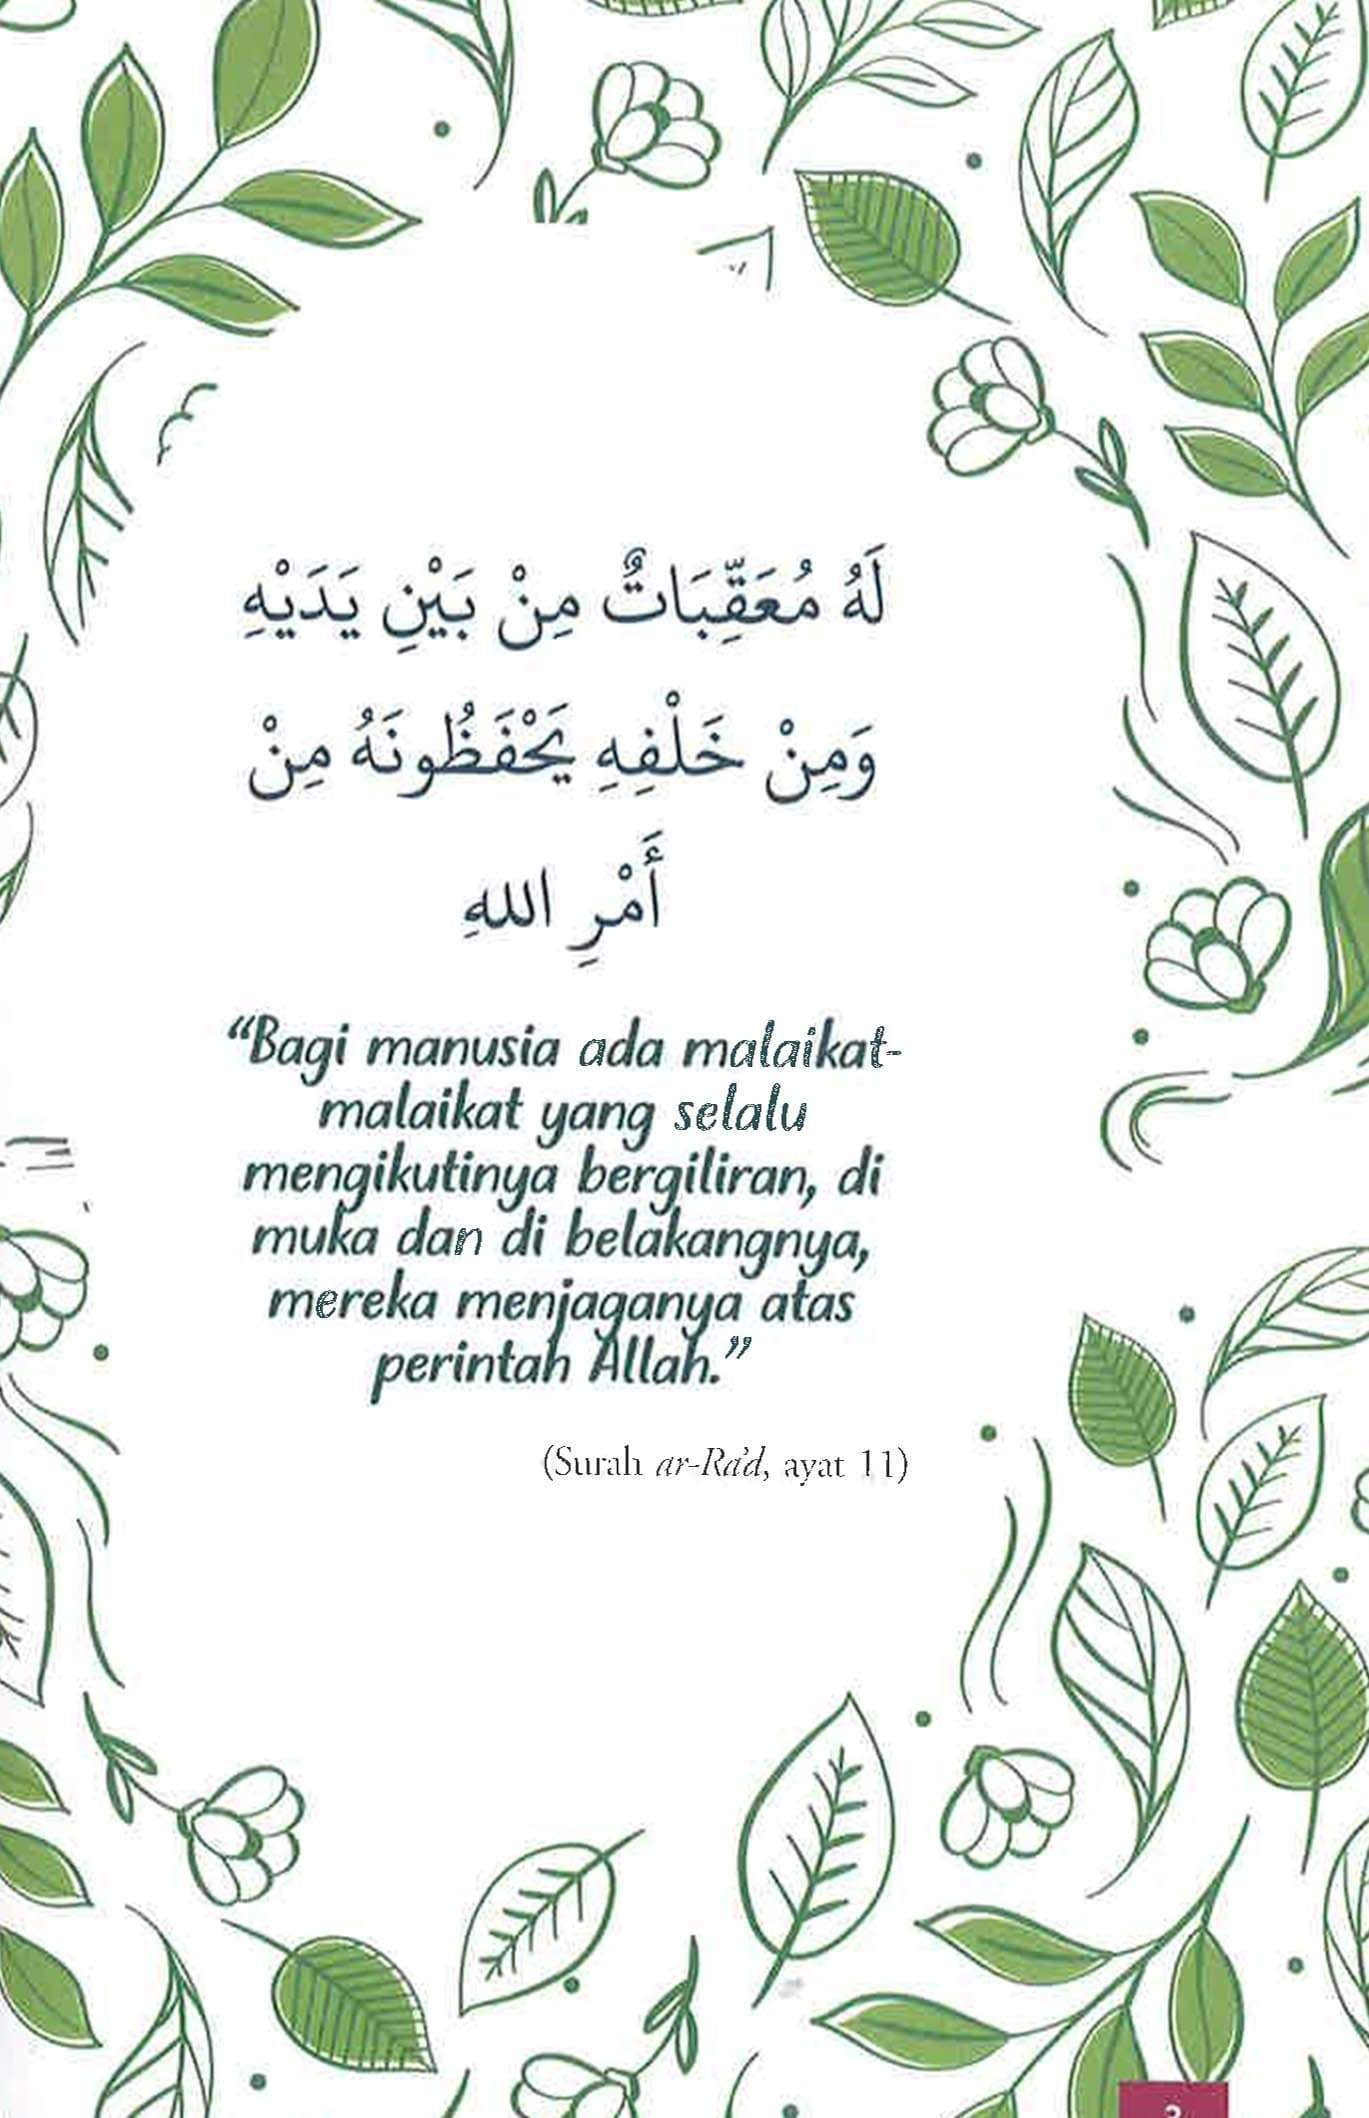 لَهُ مُعَقِّبَاتٌ مِنْ بَيْنِ يَدَيْهِ
وَمِنْ خَلْفِهِ يَحْفَظُونَهُ مِنْ
أَمْرِ اللهِ
“Bagi manusia ada malaikat-
malaikat yang selalu
mengikutinya bergiliran, di
muka dan di belakangnya,
mereka menjaganya atas
perintah Allah.”
(Surah ar-Ra’d, ayat 11)